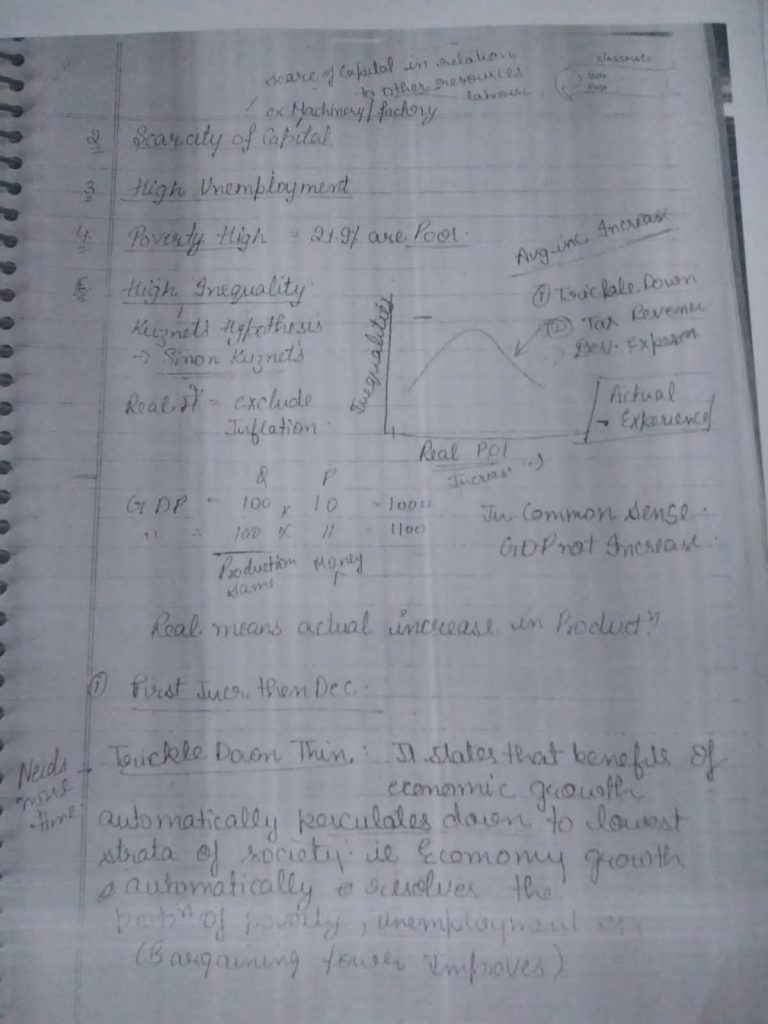 scare of Capital in relation
to other resources
labour
ex Machinery / factory
classmate
Date
Page
2 Scarcity of Capital
3 High Unemployment
4. Poverty High = 21.9% are Poor.
5 High Inequality
Kuznet's Hypothesis
→ Simon Kuznet's
Real = exclude
Inflation.
Avg inc Increase
① Trickle Down
② Tax Revenue
Dev. Expen
Inequalities
Actual
→ Experience
Real PCI
Increase
Q P
GDP = 100 x 10 = 1000
" = 100 x 11 = 1100
Production Money
same
In Common sense.
GDP not Increase.
Real means actual increase in Productⁿ
① First Incr. then Dec.
Needs
more
time
→ Trickle Down : It states that benefits of
economic growth
automatically perculates down to lowest
strata of society ie Economy growth
automatically resolves the
of poverty, unemployment
(Bargaining Power Improves)